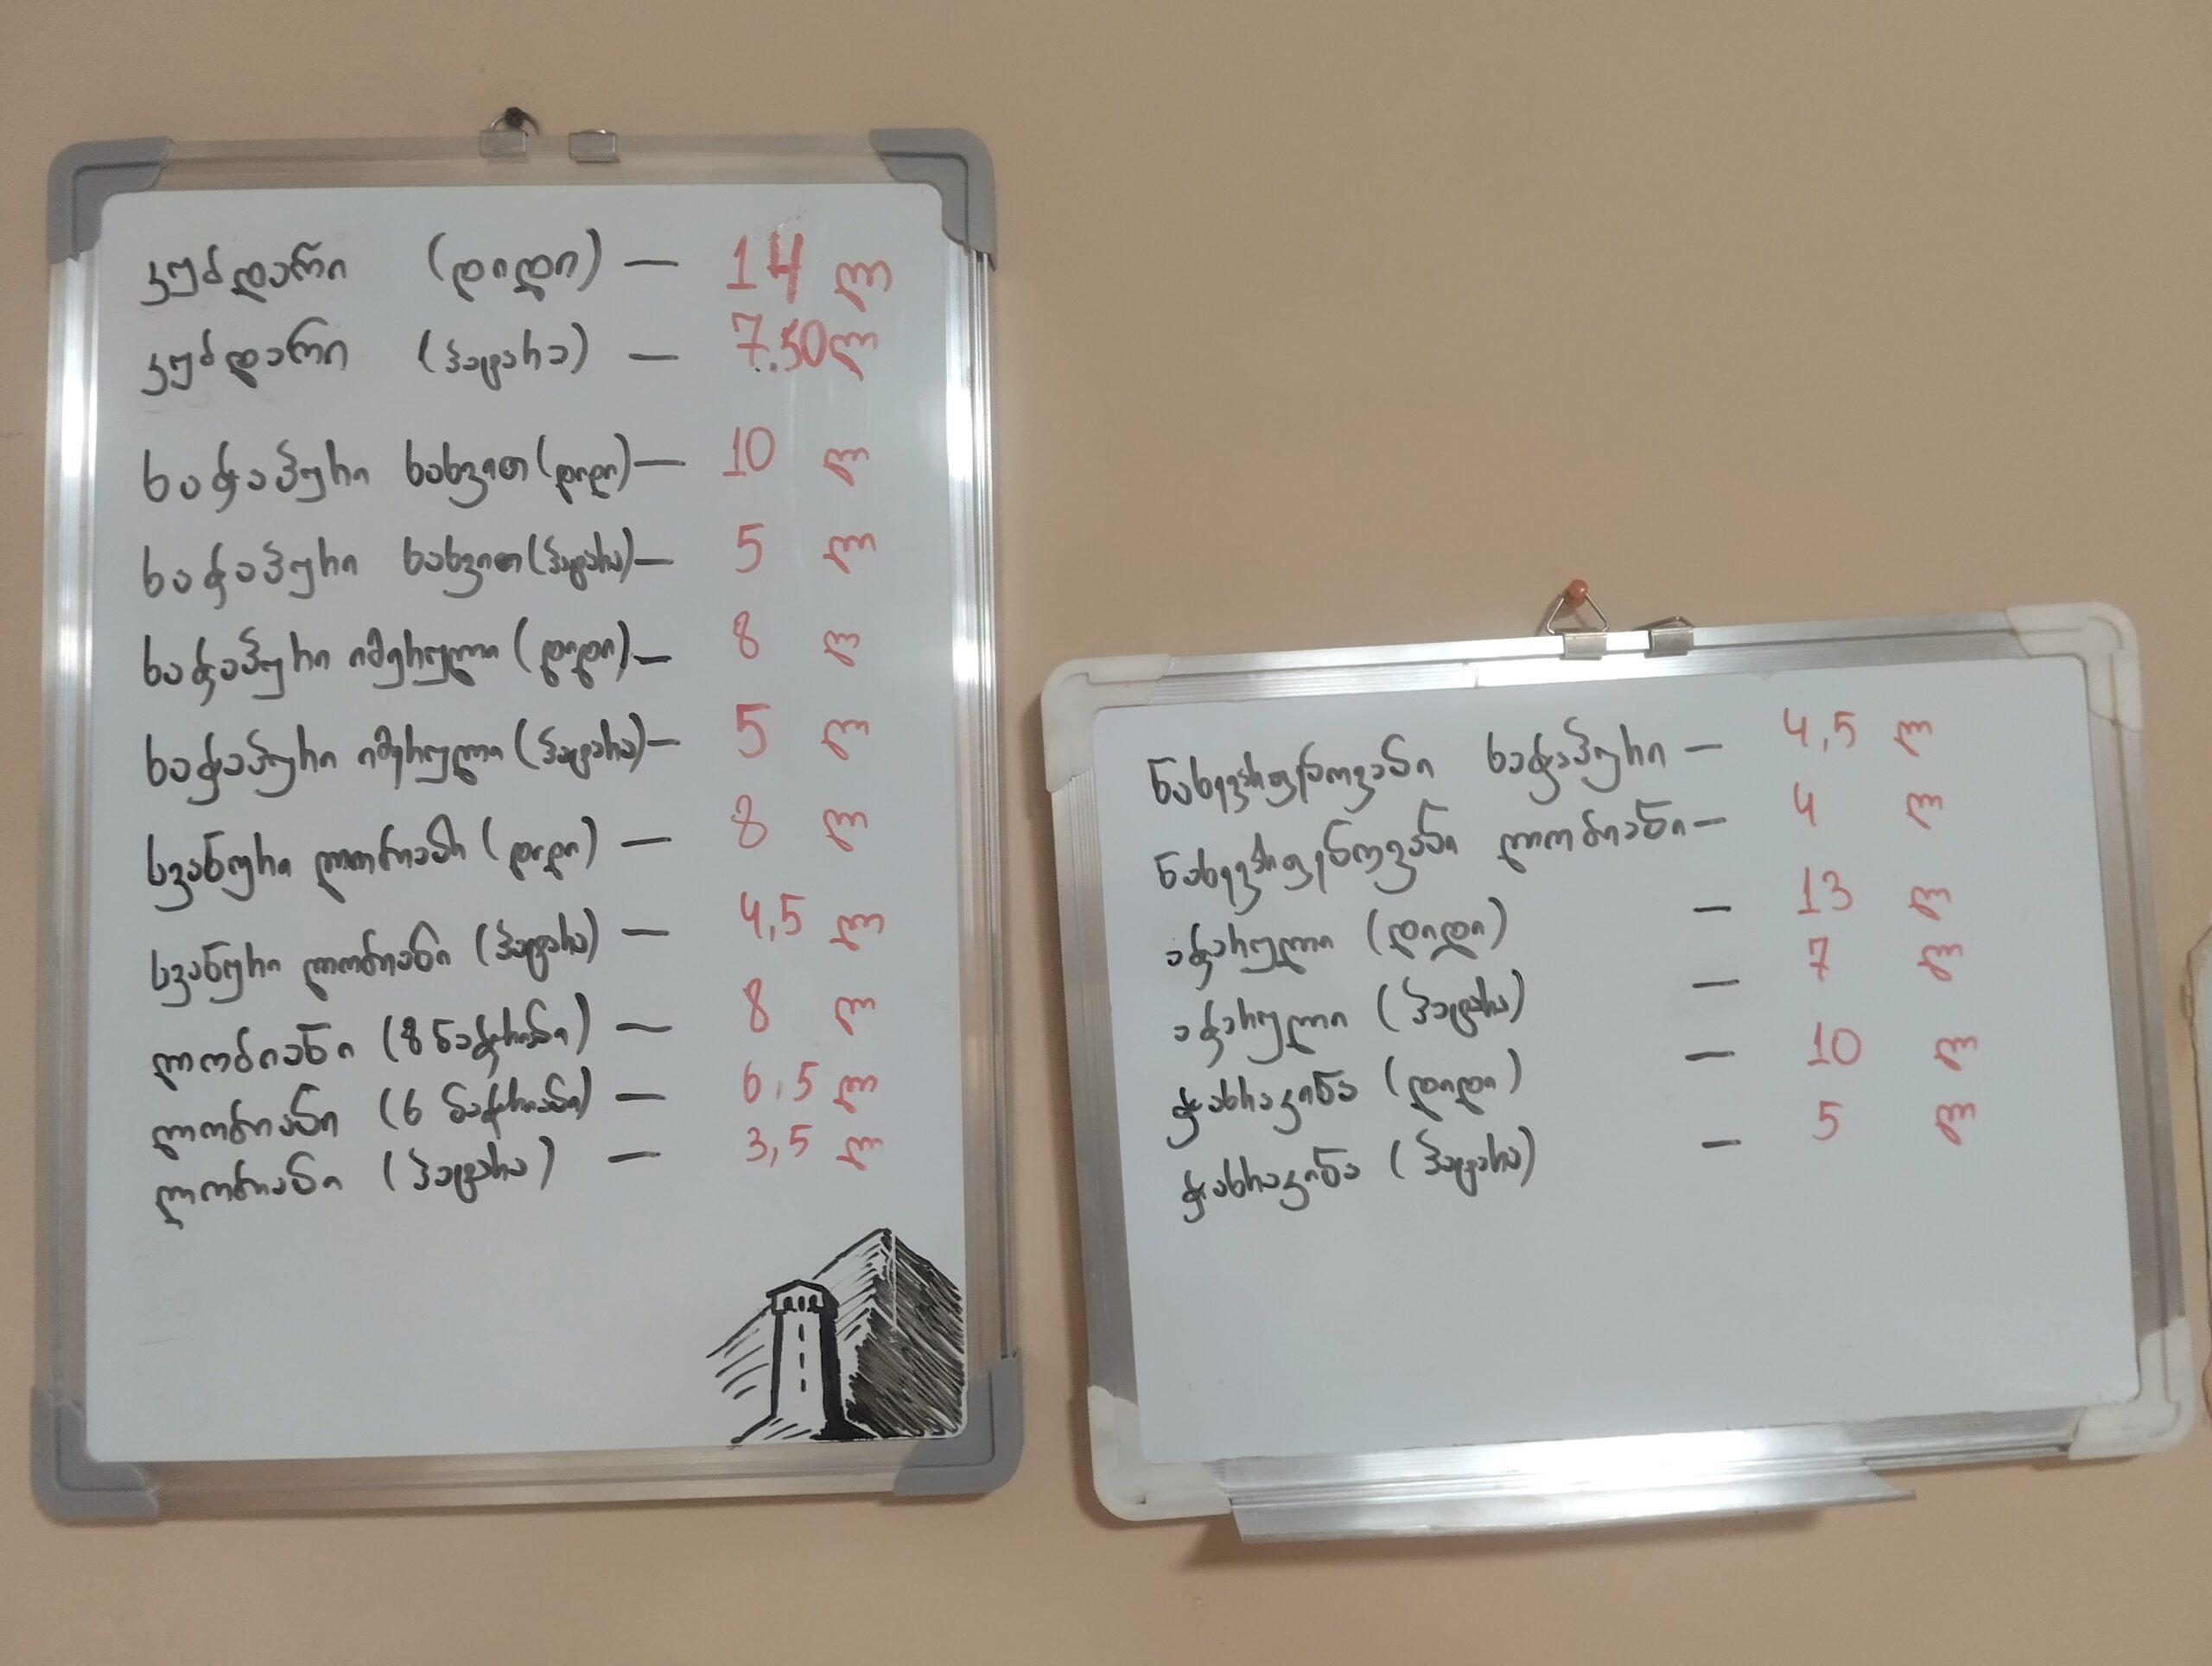 კუბდარი (დიდი) — 14 ლ
კუბდარი (პატარა) — 7.50 ლ
ხაჭაპური ხახვით (დიდი) — 10 ლ
ხაჭაპური ხახვით (პატარა) — 5 ლ
ხაჭაპური იმერული (დიდი) — 8 ლ
ხაჭაპური იმერული (პატარა) — 5 ლ
სვანური ლობიანი (დიდი) — 8 ლ
სვანური ლობიანი (პატარა) — 4,5 ლ
ლობიანი (8 ნაჭრიანი) — 8 ლ
ლობიანი (6 ნაჭრიანი) — 6,5 ლ
ლობიანი (პატარა) — 3,5 ლ
ნახევარფენოვანი ხაჭაპური — 4,5 ლ
ნახევარფენოვანი ლობიანი — 4 ლ
აჭარული (დიდი) — 13 ლ
აჭარული (პატარა) — 7 ლ
ჭახრაკინა (დიდი) — 10 ლ
ჭახრაკინა (პატარა) — 5 ლ